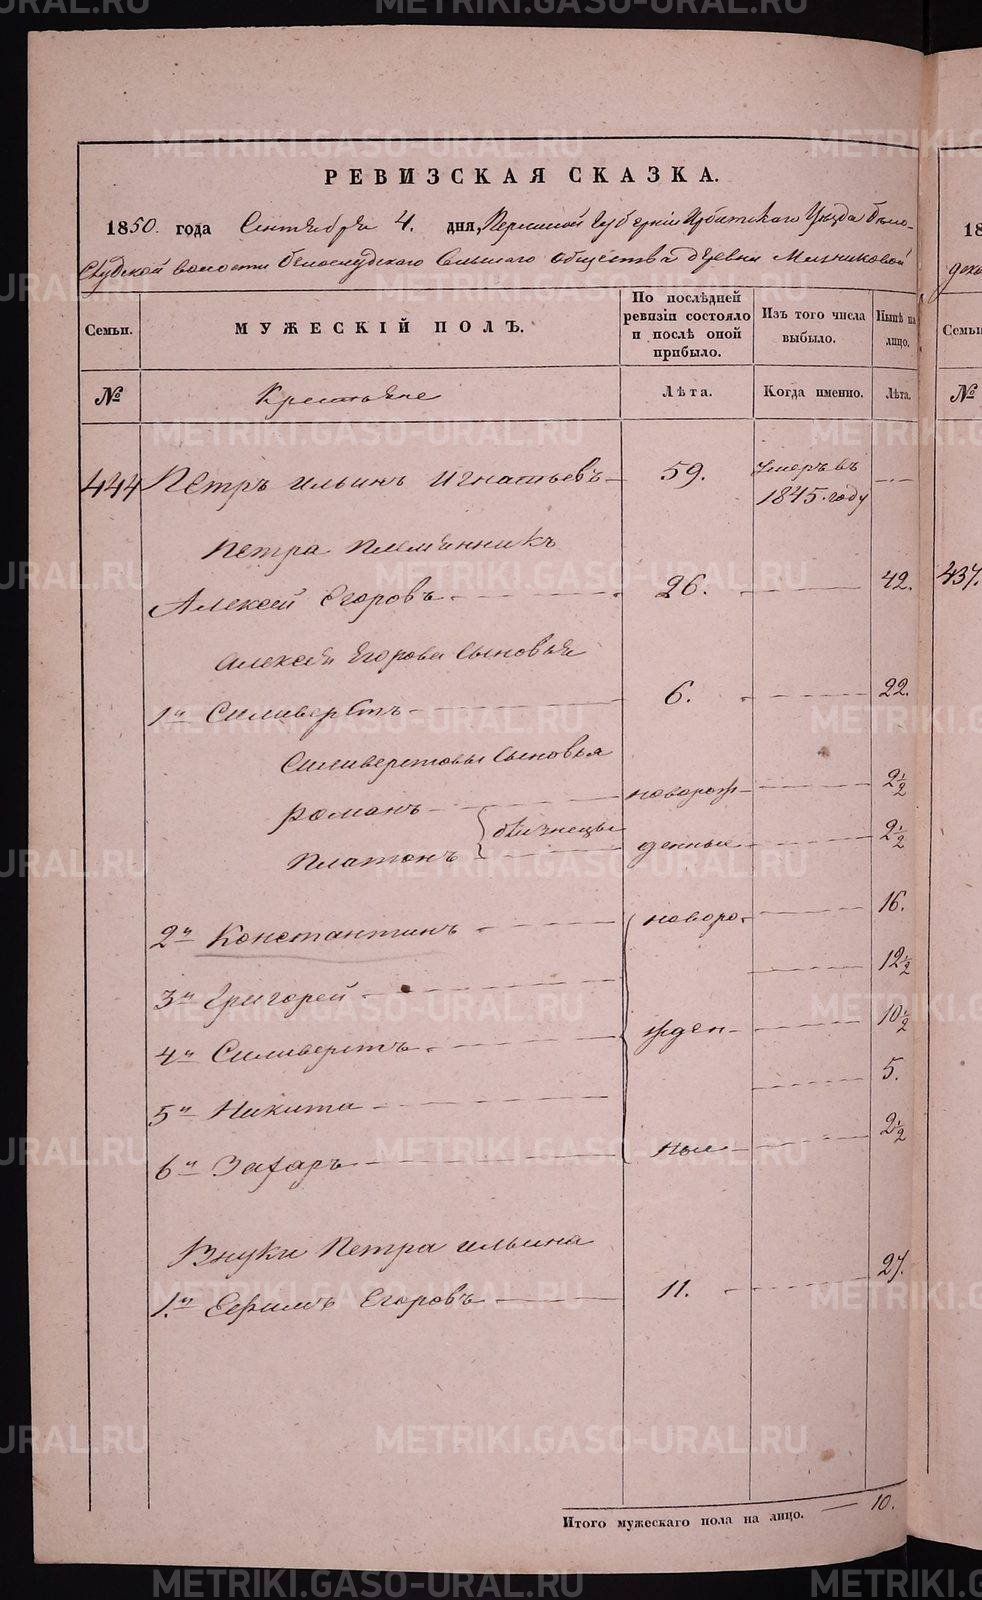 METRIKI.GASO-URAL.RU
РЕВИЗСКАЯ СКАЗКА.
1850. года Сентября 4. дня, Пермской Губерніи Ирбитскаго Уѣзда Бѣло-
слудской волости Бѣлослудскаго Сельскаго общества деревни Мягниковой
Семьи. МУЖЕСКІЙ ПОЛЪ. По послѣдней ревизіи состояло и послѣ оной прибыло. Изъ того числа выбыло. Нынѣ на лицо.
№ Крестьяне Лѣта. Когда именно. Лѣта.
444 Петръ Ильинъ Игнатьевъ 59. Умеръ въ 1845. году —
Петра племянникъ
Алексей Егоровъ 26. — 42.
Алексея Егорова сыновья
1й Силиверстъ 6. — 22.
Силиверстовы сыновья
Романъ новорож- 2½
близнецы
Платонъ денные 2½
2й Константинъ новоро- 16.
3й Григорей 12½
4й Силиверстъ жден- 10½
5й Никита 5.
6й Захаръ ные 2½
Внуки Петра Ильина
1й Ефимъ Егоровъ 11. — 27.
Итого мужескаго пола на лицо. — 10.
18
Семьи
№
437.